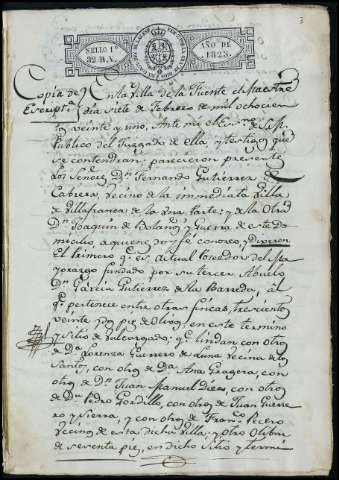 3
SELLO 1º
32 R.V.
AÑO DE
1823.
Copia de
Escript.ª
En la Villa de la Fuente el Maestre
dia siete de Febrero de mil ochocien
tos veinte y uno, Ante mi el Ess.no de S.M.
Publico del Juzgado de ella, y testigos que
se contendran; parecieron presente
los Señores Dn. Fernando Gutierrez de
Cabrera, vecino de la inmediata Villa
de Villafranca de la una parte; y de la Otra
Dn. Joaquin de Bolaños y Guerra de este do
micilio, a quienes doy fe conozco, y Dixeron
El primero q.e es actual Poseedor del Ma
yorazgo fundado por su tercer Abuelo
Dn. Garcia Gutierrez de la Barreda, al
q.e pertenece entre otras fincas, trescientos
veinte pies de Olivos, en este termino
y Sitio de q.e lindan con otro
de D.a Lorenza Guerrero de Luna vecina de los
Santos, con otro de D.a Ana Gragera, con
otro de Dn. Juan Manuel Diez, con otro
de Dn. Pedro Gordillo, con otro de Juan Guerre
ro y Sierra, y con otro de Fran.co Pecero
vecino de esta dicha Villa; y otro Olibar
de setenta pies, en dicho Sitio y termi